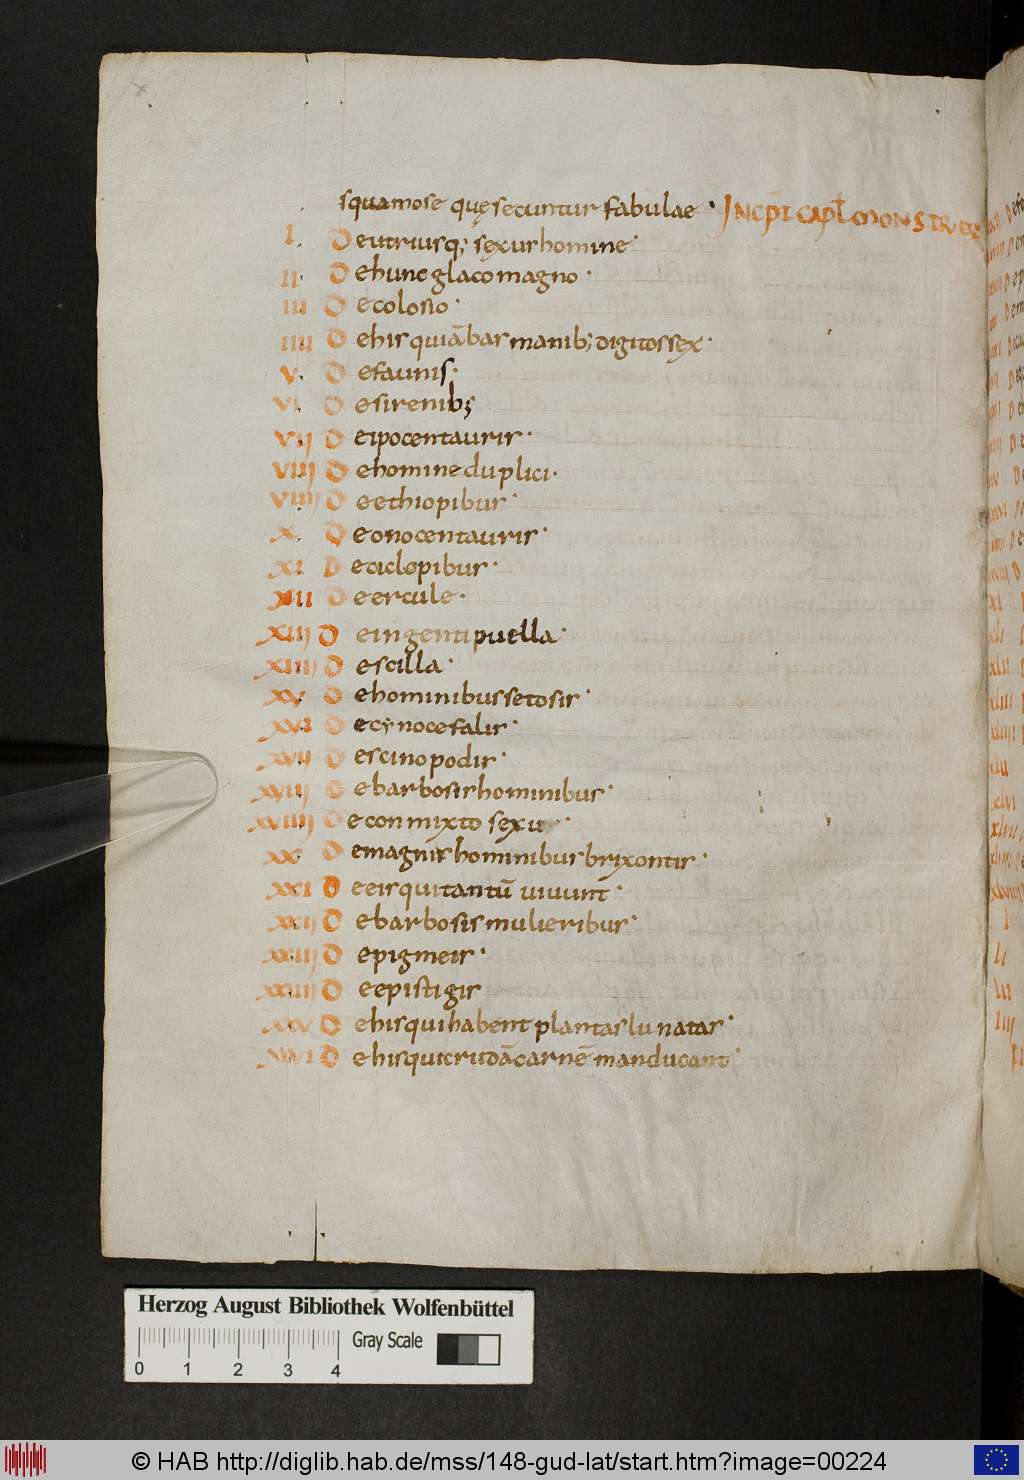 squamose quę secuntur fabulae · INCPT CAPL MONSTRORU
I. De utriusq; sexus homine ·
II De hunc glaco magno ·
III De colosio ·
IIII De his qui ābas manib; digitos sex ·
V. De faunis ·
VI. De sirenib;
VII De ipocentauris ·
VIII De homine duplici ·
VIIII De ethiopibus ·
X. De onocentauris ·
XI De ciclopibus ·
XII De ercule ·
XIII De ingenti puella ·
XIIII De scilla ·
XV De hominibus setosis ·
XVI De cynocefalis ·
XVII De scinopodis ·
XVIII De barbosis hominibus ·
XVIIII De conmixto sexu ·
XX De magnis hominibus brixontis ·
XXI De eis qui tantū vivunt ·
XXII De barbosis mulieribus ·
XXIII De pigmeis ·
XXIIII De epistigis
XXV De his qui habent plantas lunatas ·
XXVI De his qui crudā carnē manducant ·
Herzog August Bibliothek Wolfenbüttel
Gray Scale
0 1 2 3 4
© HAB http://diglib.hab.de/mss/148-gud-lat/start.htm?image=00224